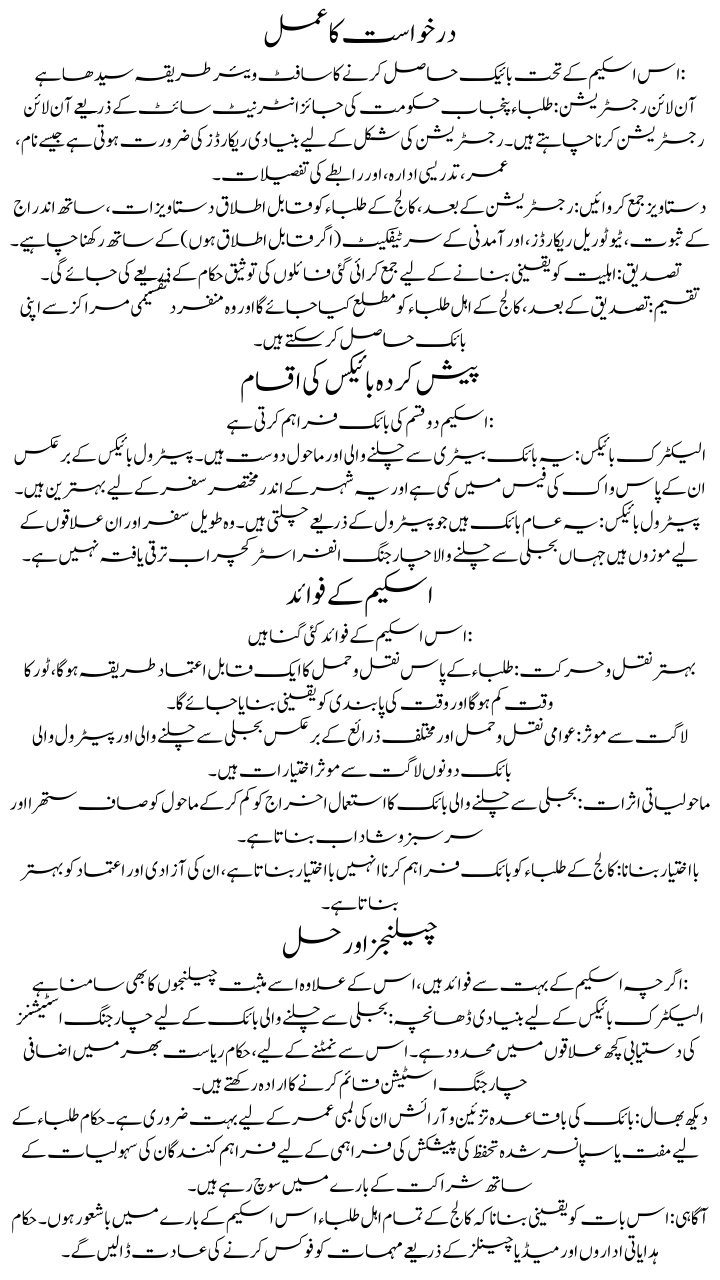 درخواست کا عمل
:اس اسکیم کے تحت بائیک حاصل کرنے کا سافٹ ویئر طریقہ سیدھا ہے
آن لائن رجسٹریشن: طلباء پنجاب حکومت کی جائز انٹرنیٹ سائٹ کے ذریعے آن لائن
رجسٹریشن کرنا چاہتے ہیں۔ رجسٹریشن کی شکل کے لیے بنیادی ریکارڈز کی ضرورت ہوتی ہے جیسے نام،
عمر، تدریسی ادارہ، اور رابطے کی تفصیلات۔
دستاویز جمع کروائیں: رجسٹریشن کے بعد، کالج کے طلباء کو قابل اطلاق دستاویزات، ساتھ اندراج
کے ثبوت، ٹیوٹوریل ریکارڈز، اور آمدنی کے سرٹیفکیٹ (اگر قابل اطلاق ہوں) کے ساتھ رکھنا چاہیے۔
تصدیق: اہلیت کو یقینی بنانے کے لیے جمع کرائی گئی فائلوں کی توثیق حکام کے ذریعے کی جائے گی۔
تقسیم: تصدیق کے بعد، کالج کے اہل طلباء کو مطلع کیا جائے گا اور وہ منفرد تقسیمی مراکز سے اپنی
بائک حاصل کر سکتے ہیں۔
پیش کردہ بائیکس کی اقسام
:اسکیم دو قسم کی بائک فراہم کرتی ہے
الیکٹرک بائیکس: یہ بائک بیٹری سے چلنے والی اور ماحول دوست ہیں۔ پیٹرول بائیکس کے برعکس
ان کے پاس واک کی فیس میں کمی ہے اور یہ شہر کے اندر مختصر سفر کے لیے بہترین ہیں۔
پیٹرول بائیکس: یہ عام بائک ہیں جو پیٹرول کے ذریعے چلتی ہیں۔ وہ طویل سفر اور ان علاقوں کے
لیے موزوں ہیں جہاں بجلی سے چلنے والا چارجنگ انفراسٹرکچر اب ترقی یافتہ نہیں ہے۔
اسکیم کے فوائد
:اس اسکیم کے فوائد کئی گنا ہیں
بہتر نقل و حرکت: طلباء کے پاس نقل و حمل کا ایک قابل اعتماد طریقہ ہوگا، ٹور کا
وقت کم ہوگا اور وقت کی پابندی کو یقینی بنایا جائے گا۔
لاگت سے موثر: عوامی نقل و حمل اور مختلف ذرائع کے برعکس بجلی سے چلنے والی اور پیٹرول والی
بائک دونوں لاگت سے موثر اختیارات ہیں۔
ماحولیاتی اثرات: بجلی سے چلنے والی بائک کا استعمال اخراج کو کم کر کے ماحول کو صاف ستھرا اور
سرسبز و شاداب بناتا ہے۔
بااختیار بنانا: کالج کے طلباء کو بائک فراہم کرنا انہیں بااختیار بناتا ہے، ان کی آزادی اور اعتماد کو بہتر
بناتا ہے۔
چیلنجز اور حل
:اگرچہ اسکیم کے بہت سے فوائد ہیں، اس کے علاوہ اسے مثبت چیلنجوں کا بھی سامنا ہے
الیکٹرک بائیکس کے لیے بنیادی ڈھانچہ: بجلی سے چلنے والی بائک کے لیے چارجنگ اسٹیشنز
کی دستیابی کچھ علاقوں میں محدود ہے۔ اس سے نمٹنے کے لیے، حکام ریاست بھر میں اضافی
چارجنگ اسٹیشن قائم کرنے کا ارادہ رکھتے ہیں۔
دیکھ بھال: بائک کی باقاعدہ تزئین و آرائش ان کی لمبی عمر کے لیے بہت ضروری ہے۔ حکام طلباء کے
لیے مفت یا سپانسر شدہ تحفظ کی پیشکش کی فراہمی کے لیے فراہم کنندگان کی سہولیات کے
ساتھ شراکت کے بارے میں سوچ رہے ہیں۔
آگاہی: اس بات کو یقینی بنانا کہ کالج کے تمام اہل طلباء اس اسکیم کے بارے میں باشعور ہوں۔ حکام
ہدایاتی اداروں اور میڈیا چینلز کے ذریعے مہمات کو فوکس کرنے کی عادت ڈالیں گے۔